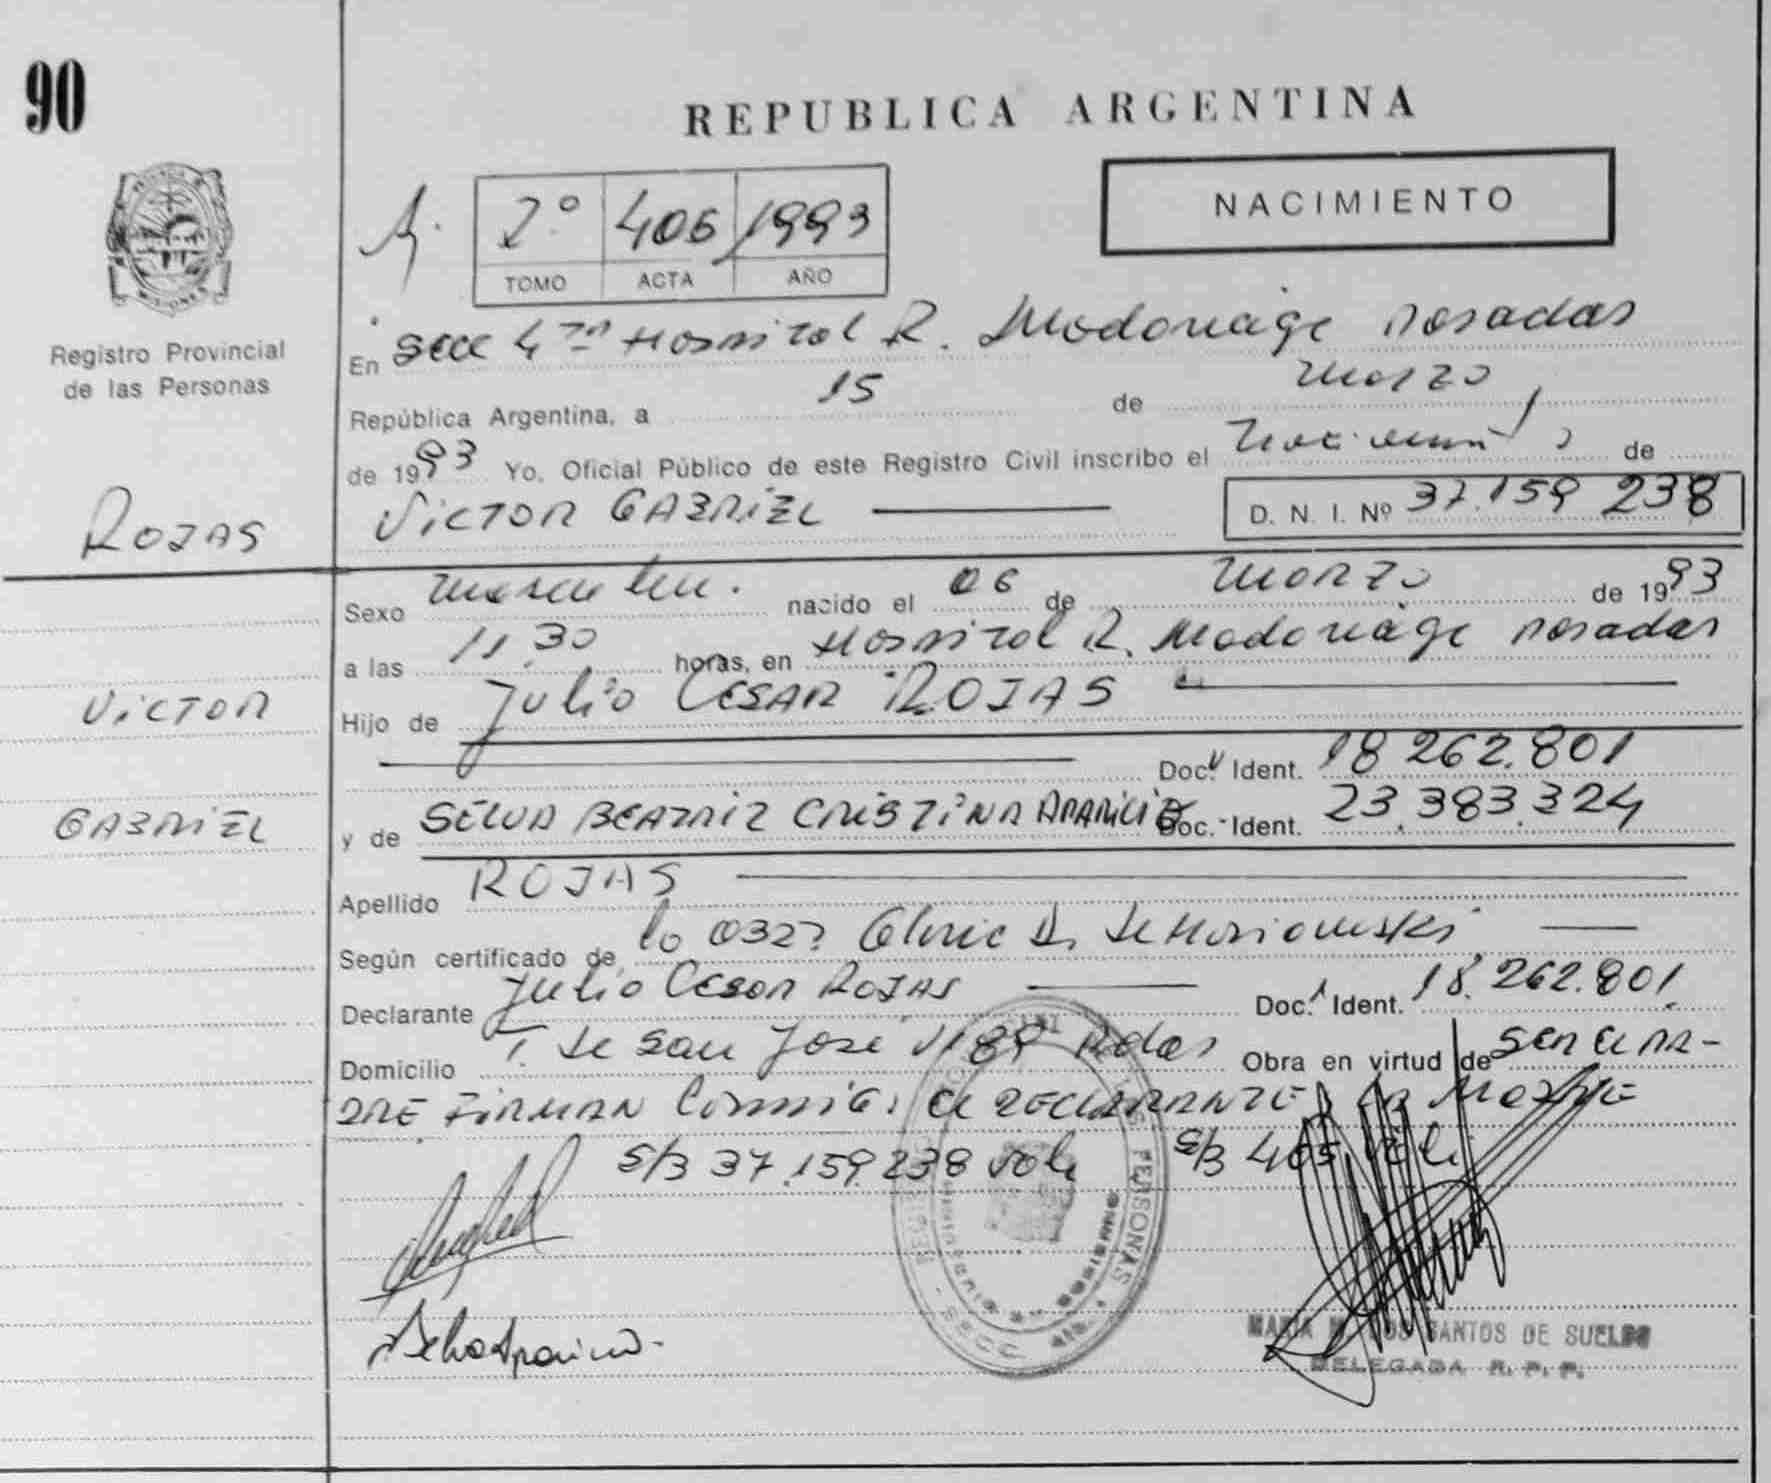 90
REPUBLICA ARGENTINA
NACIMIENTO
2º 405 1993
TOMO ACTA AÑO
Registro Provincial
de las Personas
MISIONES
En Secc 4ta Hospital R. Madariaga Posadas
República Argentina, a 15 de Marzo
de 1993 Yo, Oficial Público de este Registro Civil inscribo el de
ROJAS
VICTOR GABRIEL
D. N. I. Nº 37.159 238
Sexo nacido el 06 de Marzo de 1993
a las 11,30 horas, en Hospital R. Madariaga Posadas
VICTOR
Hijo de Julio CESAR ROJAS
Doc. Ident. 18 262.801
GABRIEL
y de SELVA BEATRIZ CRISTINA APARICIO Doc. Ident. 23.383.324
Apellido ROJAS
Según certificado de
Declarante Julio Cesar ROJAS Doc. Ident. 18.262.801
Domicilio de San José Obra en virtud de Ser el PA-
DRE FIRMAN el DECLARANTE La MADRE
S/B 37.159.238 vale S/B 405 vale
PERSONAS
MARIA M. DOS SANTOS DE SUELDO
DELEGADA R. P. P.